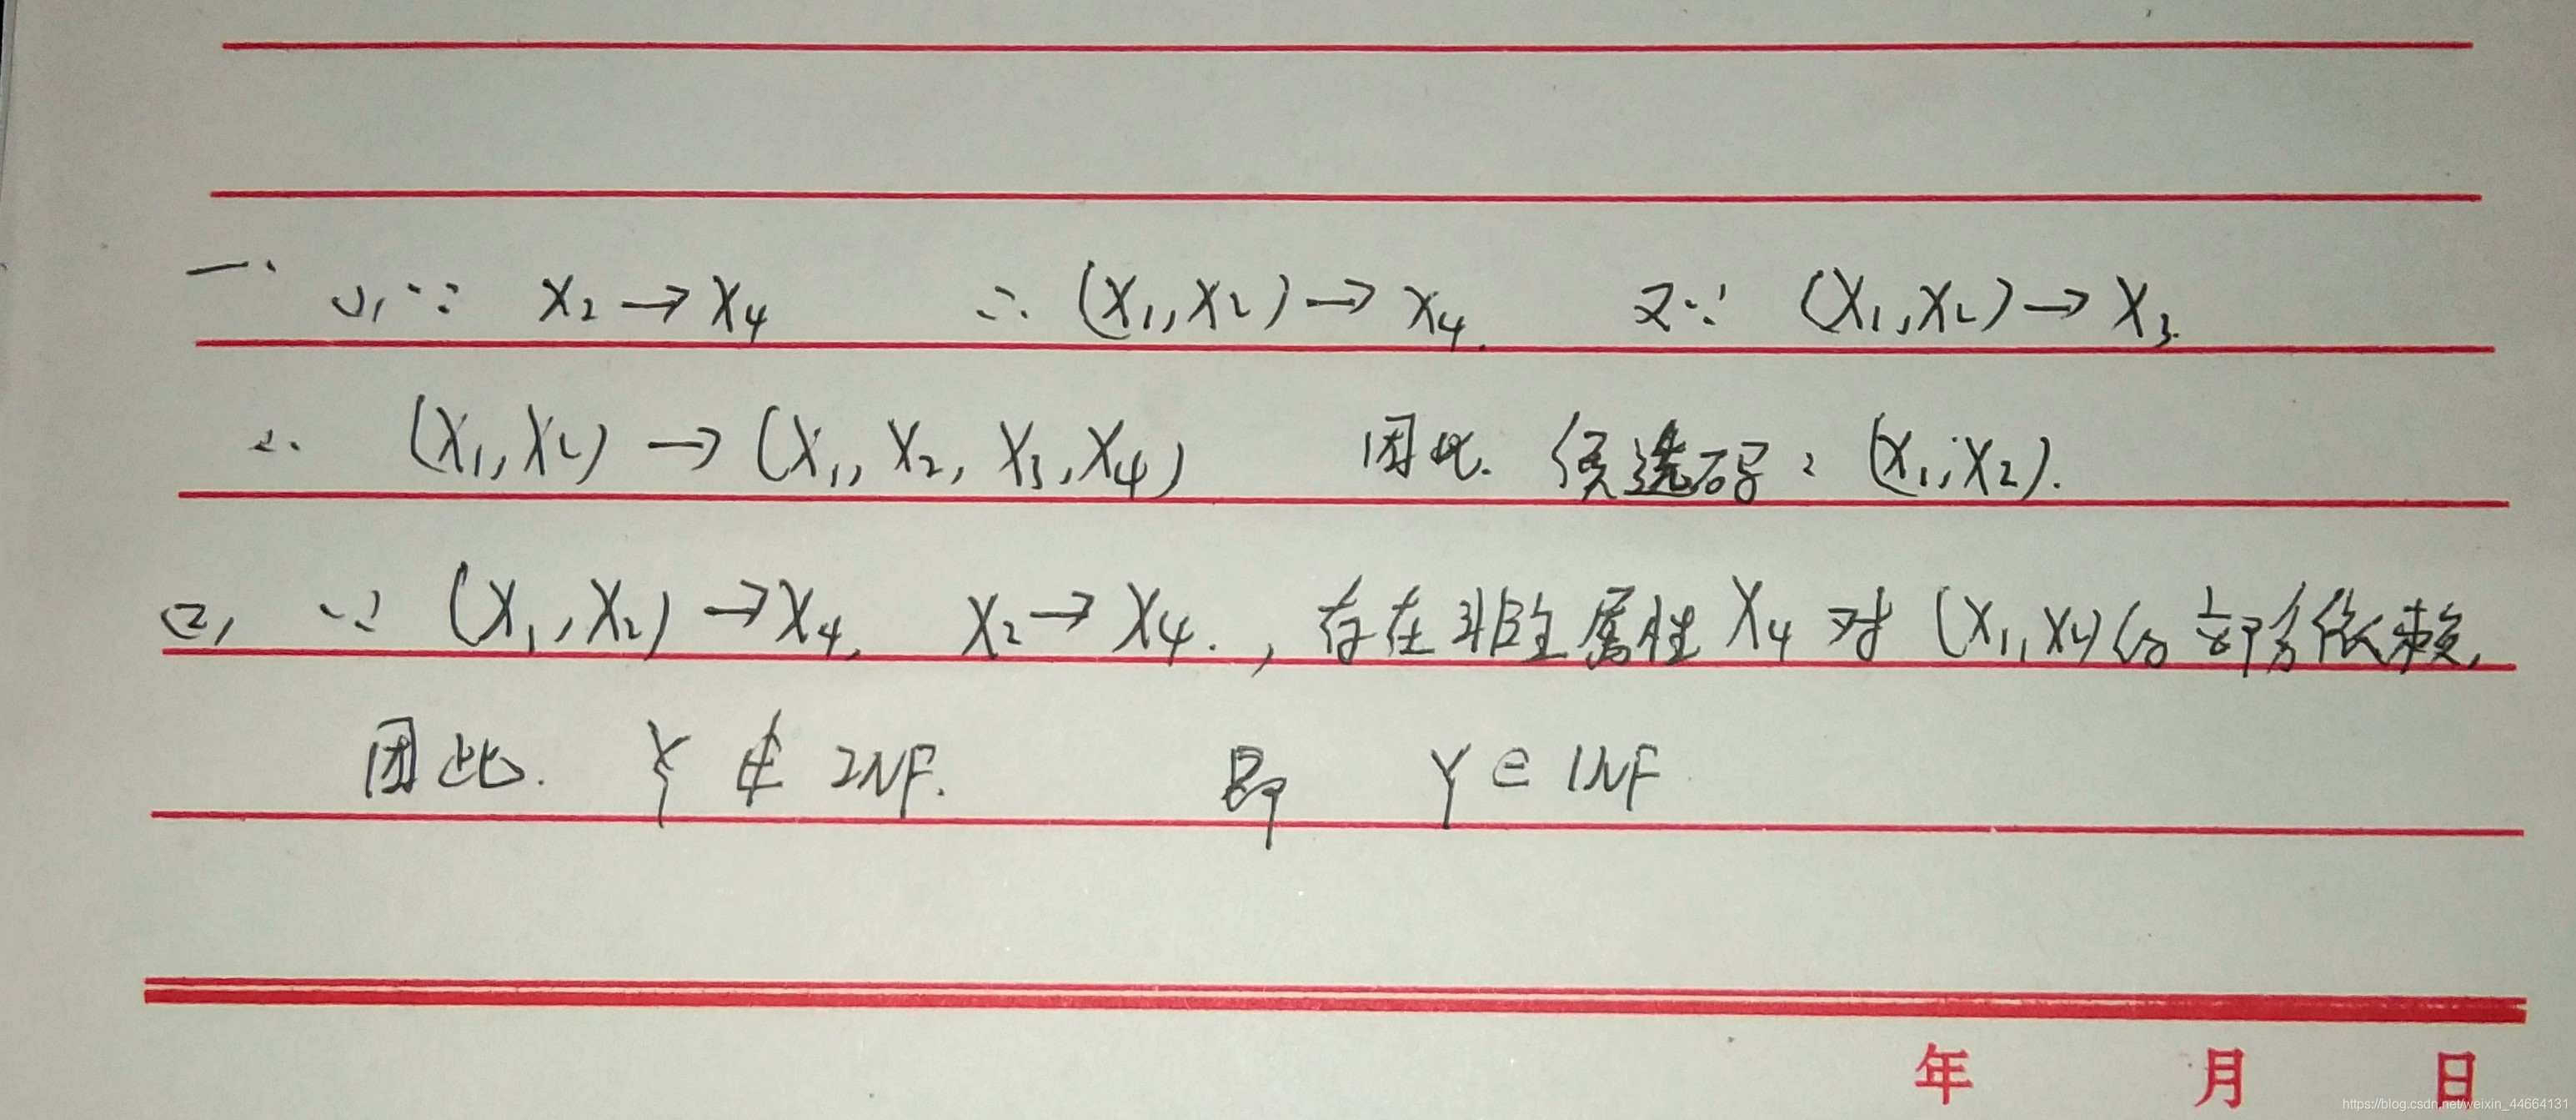 一、(1) ∵ X₂→X₄ ∴ (X₁,X₂)→X₄. 又∵ (X₁,X₂)→X₃.
∴ (X₁,X₂)→(X₁,X₂,X₃,X₄) 因此. 候选码: (X₁,X₂).
(2) ∵ (X₁,X₂)→X₄, X₂→X₄., 存在非主属性X₄对(X₁,X₂)的部分依赖,
因此. Y∉2NF. 即 Y∈1NF
年 月 日
https://blog.csdn.net/weixin_44664131